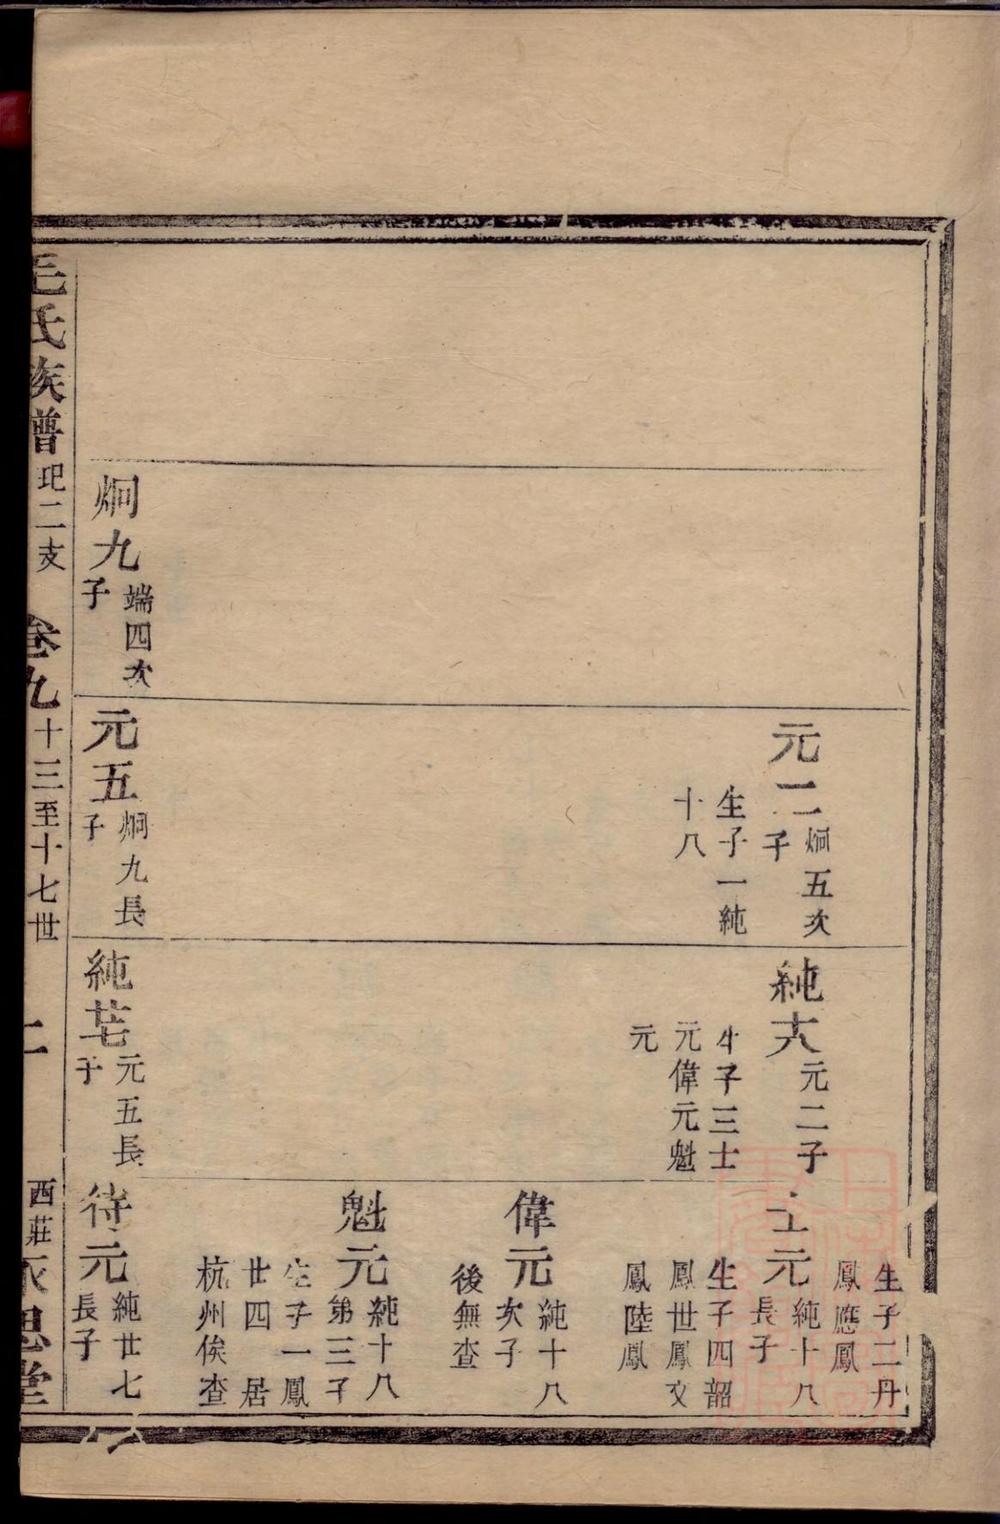 元二
炯五次
子
生子一純
十八
純大
元二子
生子三士
元偉元魁
元
生子二丹
鳳應鳳
士元
純十八
長子
生子四韶
鳳世鳳文
鳳陸鳳
偉元
純十八
次子
後無查
魁元
純十八
第三子
生子一鳳
廿四居
杭州俟查
炯九
端四次
子
元五
炯九長
子
純廿七
元五長
子
待元
純廿七
長子
毛氏族譜 圯二支 卷九 十三至十七世 二 西莊永思堂